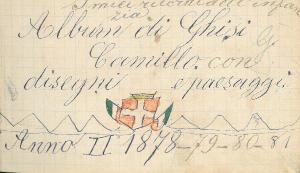 I miei ricordi dell' infan
zia
Album di Ghisi
Camillo con
disegni e paesaggi
Anno II 1878-79-80-81